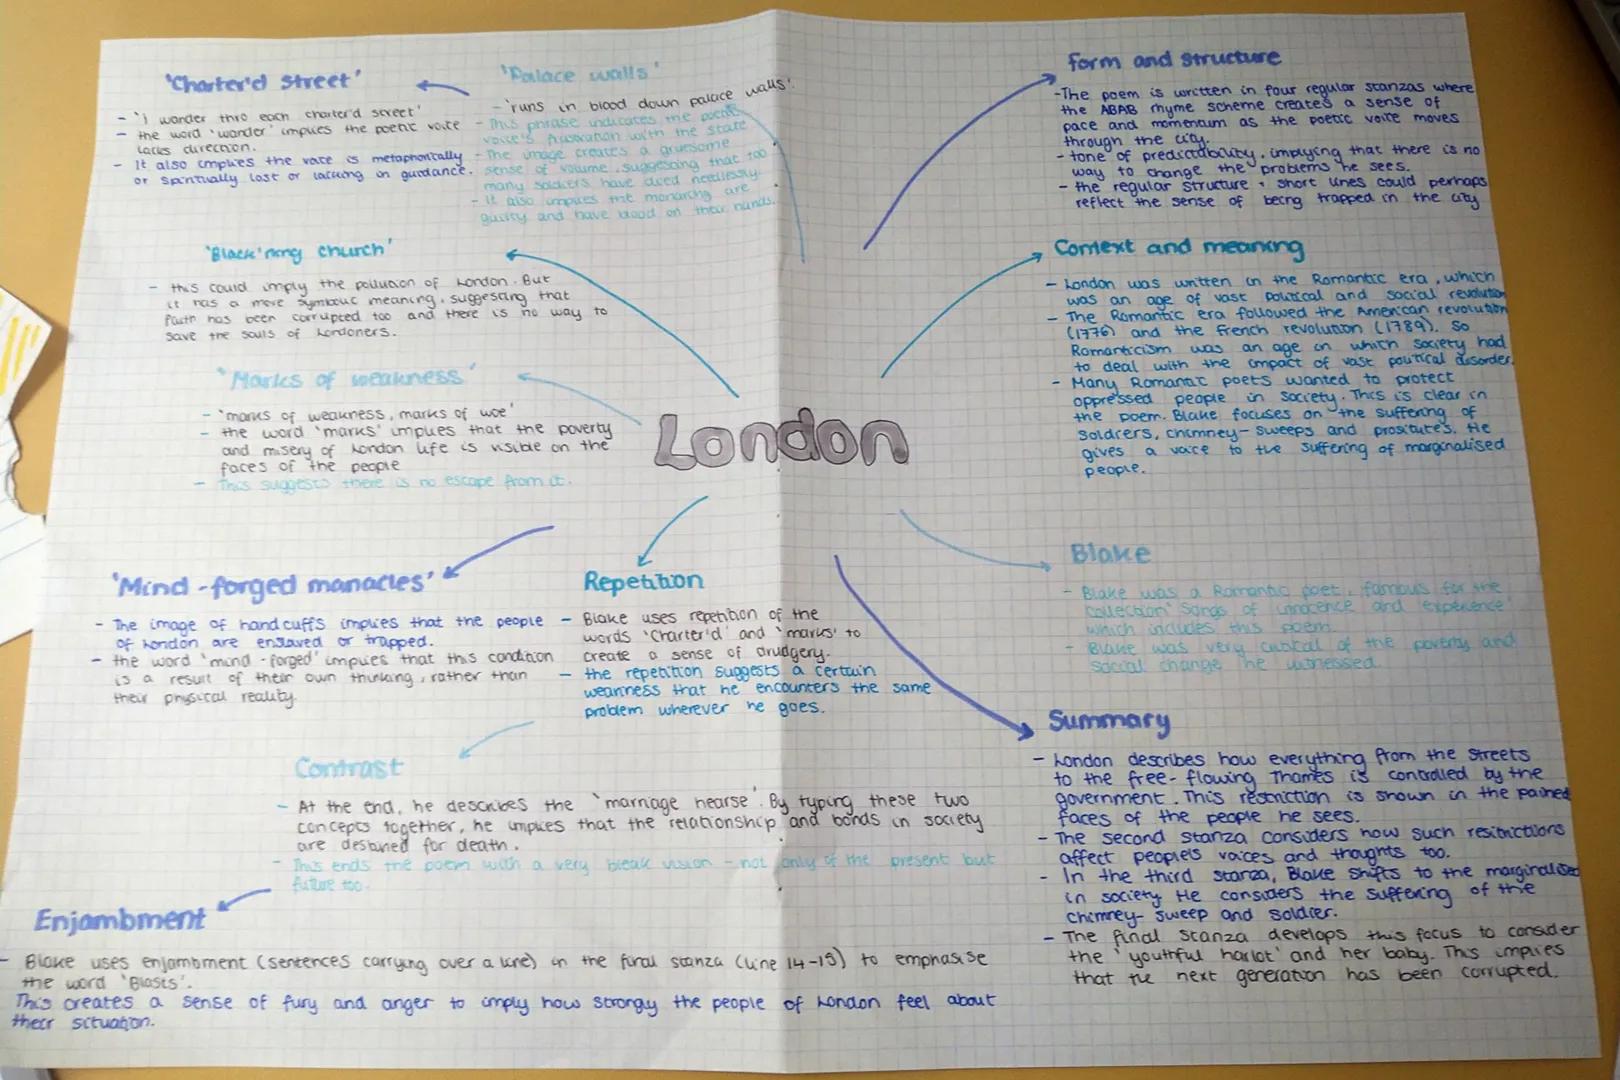 'Charter'd Street'
- 'i wander thro each charter'd street'
- the word 'wander' implies the poetic voice
lacks direction.
- It also implies the voice is metaphorically
or spiritually lost or lacking in guidance.
'Palace walls'
- 'runs in blood down palace walls'.
- This phrase indicates the poetic
voice's frustration with the state
- The image creates a gruesome
sense of volume, suggesting that too
many soldiers have died needlessly.
- It also implies the monarchy are
guilty and have blood on their hands.
'Black'ning church'
- this could imply the pollution of London. But
it has a more symbolic meaning, suggesting that
faith has been corrupted too and there is no way to
save the souls of Londoners.
'Marks of weakness'
- 'marks of weakness, marks of woe'
- the word 'marks' implies that the poverty
and misery of London life is visible on the
faces of the people
- This suggests there is no escape from it.
London
'Mind-forged manacles'
- The image of handcuffs implies that the people
of London are enslaved or trapped.
- the word 'mind-forged' implies that this condition
is a result of their own thinking, rather than
their physical reality.
Repetition
- Blake uses repetition of the
words 'Charter'd' and 'marks' to
create a sense of drudgery.
- the repetition suggests a certain
weariness that he encounters the same
problem wherever he goes.
Contrast
- At the end, he describes the 'marriage hearse'. By typing these two
concepts together, he implies that the relationship and bonds in society
are destined for death.
- This ends the poem with a very bleak vision - not only of the present but
future too.
Enjambment
- Blake uses enjambment (sentences carrying over a line) in the final stanza (line 14-15) to emphasise
the word 'Blasts'.
This creates a sense of fury and anger to imply how strongly the people of London feel about
their situation.
Form and structure
- The poem is written in four regular stanzas where
the ABAB rhyme scheme creates a sense of
pace and momentum as the poetic voice moves
through the city.
- tone of predictability, implying that there is no
way to change the problems he sees.
- the regular structure + short lines could perhaps
reflect the sense of being trapped in the city
Context and meaning
- London was written in the Romantic era, which
was an age of vast political and social revolution
- The Romantic era followed the American revolution
(1776) and the French revolution (1789). So
Romanticism was an age in which society had
to deal with the impact of vast political disorder.
- Many Romantic poets wanted to protect
oppressed people in society. This is clear in
the poem. Blake focuses on the suffering of
soldiers, chimney-sweeps and prositutes. He
gives a voice to the suffering of marginalised
people.
Blake
- Blake was a Romantic poet, famous for the
collection 'Songs of innocence and 'experience'
which includes this poem.
- Blake was very critical of the poverty and
social change he witnessed.
Summary
- London describes how everything from the streets
to the free-flowing Thames is controlled by the
government. This restriction is shown in the pained
faces of the people he sees.
- The second stanza considers how such resitrictions
affect people's voices and thoughts too.
- In the third stanza, Blake shifts to the marginalised
in society He considers the suffering of the
chimney-sweep and soldier.
- The final stanza develops this focus to consider
the 'youthful harlot' and her baby. This implies
that the next generation has been corrupted.